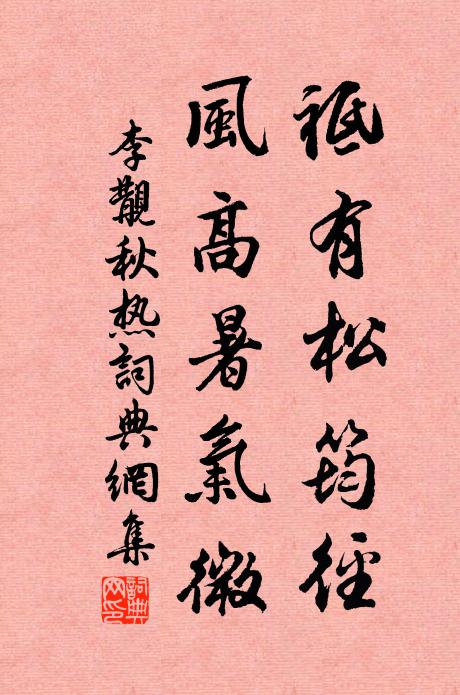 祗有松筠徑
風高暑氣微
李觀秋热詞典網集
詞典
网印